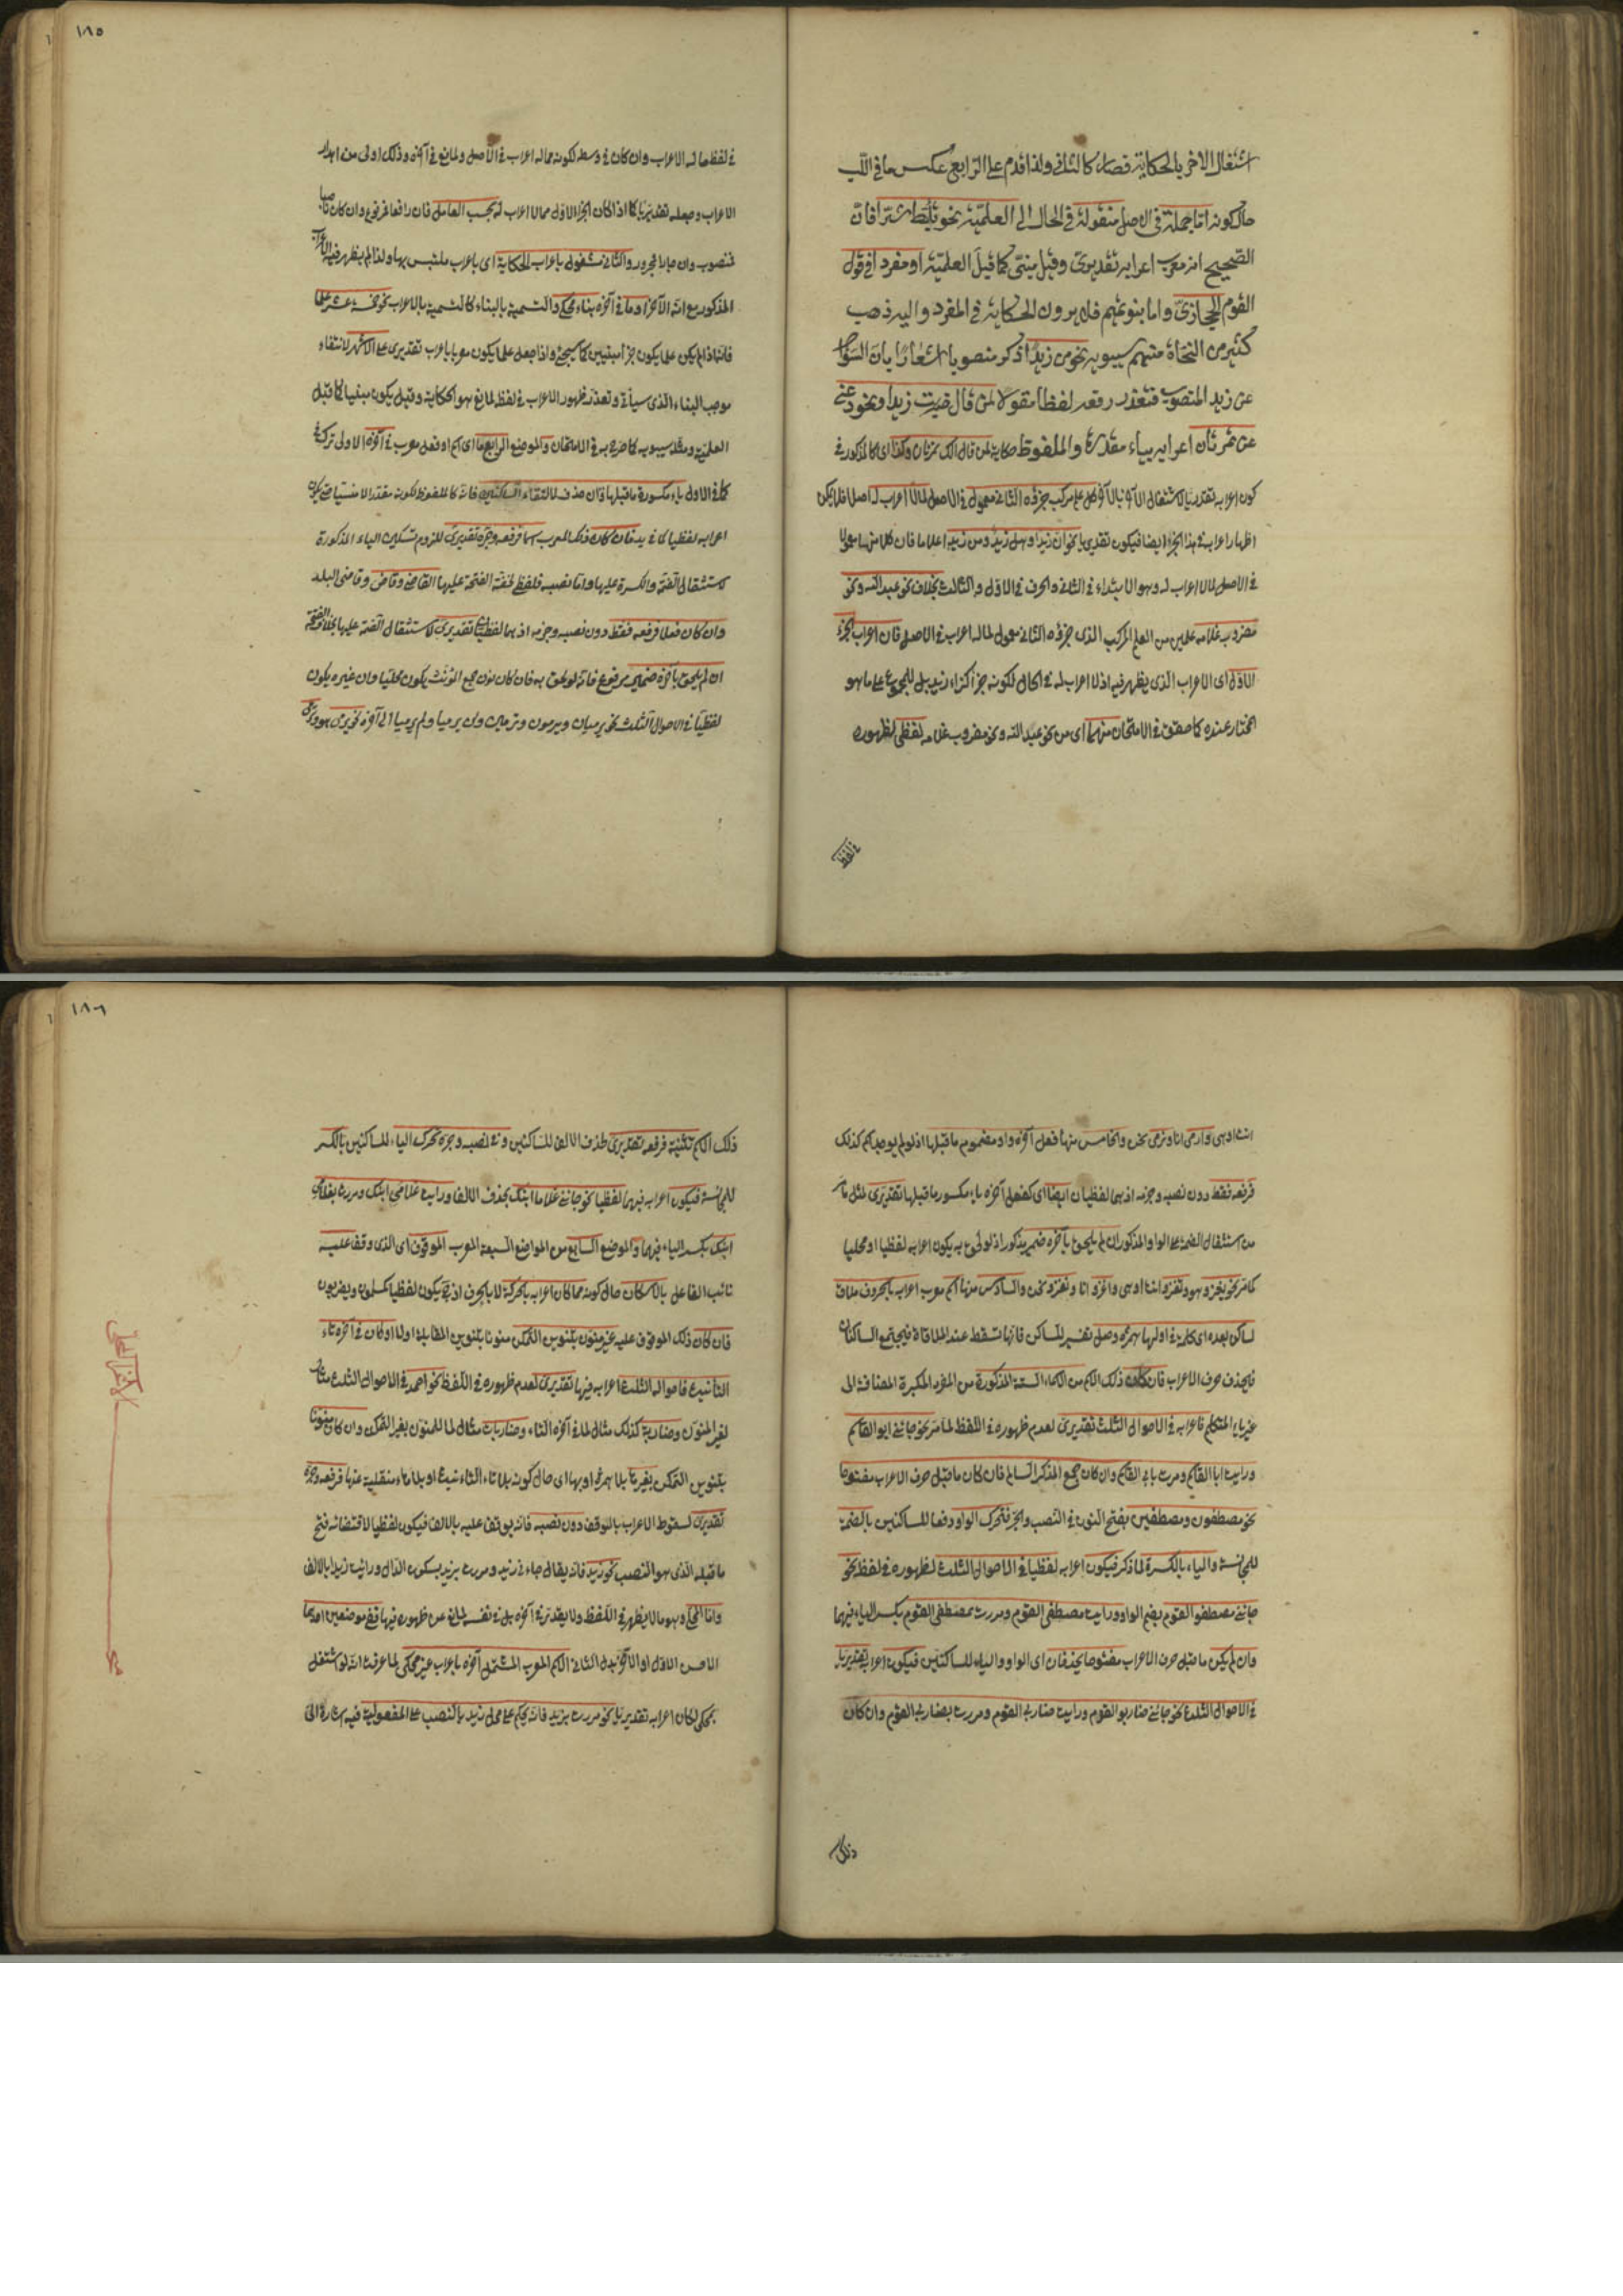 اشتغال الآخر بالحكاية فصار كالثاني ولذا قدم على الرابع عكس ما في اللب
حال كونه اما جملة في الاصل منقولة في الحال الى العلمية نحو تأبط شرا فان
الصحيح انه معرب اعرابه تقديري وقيل مبني كما قبل العلمية او مفرد في قول
القوم الحجازي واما بنو تميم فلا يرون الحكاية في المفرد واليه ذهب
كثير من النحاة منهم سيبويه نحو من زيدا ذكر منصوبا اشعارا بان السؤال
عن زيد المنصوب فتعذر رفعه لفظا مقولا لمن قال ضربت زيدا ونحو دعني
عن تمرتان اعرابه بياء مقدرة والملفوظ حكاية لمن قال لك تمرتان وكذا اي كالمذكور في
كون اعرابه تقديريا لاشتغال الآخر كل علم مركب جزؤه الثاني معمول في الاصل لما لا اعراب له اصلا فلا يمكن
اظهار اعراب هذا الجزء ايضا فيكون تقديريا نحو ان زيدا وهل زيد ومن زيد اعلاما فان كلا منها معمولا
في الاصل لما لا اعراب له وهو الابتداء في الثاني والحرف في الاول والثالث بخلاف نحو عبد الله ونحو
مضروب غلامه علمين من العلم المركب الذي جزؤه الثاني معمول لما له اعراب في الاصل فان اعراب الجزء
الاول اي الاعراب الذي يظهر فيه اذ لا اعراب له في الحال لكونه جزأ كزاء زيد بل للمجموع على ما هو
المختار عنده كما حققه في الامتحان منهما اي من نحو عبد الله ونحو مضروب غلامه لفظي لظهوره
في لفظ
١٨٥
في لفظ ما له الاعراب وان كان في وسطه لكونه مما له اعراب في الاصل ولمانع في آخره وذلك اولى من اهدار
الاعراب وجعله تقديريا كما اذا كان الجزء الاول مما لا اعراب له بحسب العامل فان رافعا فمرفوع وان كان ناصبا
فمنصوب وان جارا فمجرور والثاني مشغول باعراب الحكاية اي باعراب ملتبس بها ولذا لم يظهر فيه الاعراب
المذكور مع انه الآخر او ما في آخره بناء محكي والتسمية بالبناء كالتسمية بالاعراب نحو خمسة عشر علما
فانه اذا لم يكن علما يكون جزآه مبنيين كما سيجئ واذا جعل علما يكون معربا باعراب تقديري على الاشهر لانتفاء
موجب البناء الذي سيأتي وتعذر ظهور الاعراب في لفظه لمانع هو الحكاية وقيل يكون مبنيا كما قبل
العلمية ومثله سيبويه كما صرح به في الامتحان والموضع الرابع ما اي اسم او فعل معرب في آخره الاولى تركه في
كما في الاول ياء مكسورة ما قبلها وان حذف لالتقاء الساكنين فانه كالملفوظ لكونه مقدرا لا منسيا حتى يكون
اعرابه لفظيا كما في يد فان كان ذلك المعرب اسما فرفعه وجره تقديري للزوم تسكين الياء المذكورة
لاستثقال الضمة والكسرة عليها واما نصبه فلفظي لخفة الفتحة عليها القاضي وقاض وقاضي البلد
وان كان فعلا فرفعه فقط دون نصبه وجزمه اذ هما لفظيان تقديري لاستثقال الضمة عليها بخلاف الفتحة
ان لم يلحق بآخره ضمير مرفوع فانه لو لحق به فان كان نون جمع المؤنث يكون محليا وان غيره يكون
لفظيا في الاحوال الثلث نحو يرميان ويرمون وترمين ولن يرميا ولم يرميا الى آخره نحو يرمي هو وترمي
انت او هي وارمي انا ونرمي نحن والخامس منها فعل آخره واو مضموم ما قبلها اذ لو لم يوجد اسم كذلك
فرفعه فقط دون نصبه وجزمه اذ هما لفظيان ايضا اي كفعل آخره ياء مكسور ما قبلها تقديري لمثل ما مر
من استثقال الضمة على الواو المذكور ان لم يلحق بآخره ضمير مذكور اذ لو لحق به يكون اعرابه لفظيا او محليا
كما مر نحو يغزو هو وتغزو انت او هي واغزو انا ونغزو نحن والسادس منها اسم معرب اعرابه بالحروف ملاق
لساكن بعده اي كلمة في اولها همزة وصل تفسير للساكن فانها تسقط عند الملاقاة فيجتمع الساكنان
فيحذف حرف الاعراب فان كان ذلك الاسم من الاسماء الستة المذكورة من المفرد المكبرة المضافة الى
غير ياء المتكلم فاعرابه في الاحوال الثلث تقديري لعدم ظهوره في اللفظ لما مر نحو جاءني ابو القاسم
ورأيت ابا القاسم ومررت بابي القاسم وان كان جمع المذكر السالم فان كان ما قبل حرف الاعراب مفتوحا
نحو مصطفون ومصطفين بفتح النون في النصب والجر فتحرك الواو دفعا للساكنين بالضمة
للمجانسة والياء بالكسرة لما ذكر فيكون اعرابه لفظيا في الاحوال الثلث لظهوره في لفظ نحو
جاءني مصطفو القوم بضم الواو ورأيت مصطفي القوم ومررت بمصطفي القوم بكسر الياء فيهما
وان لم يكن ما قبل حرف الاعراب مفتوحا يحذفان اي الواو والياء للساكنين فيكون اعرابه تقديريا
في الاحوال الثلث نحو جاءني ضاربو القوم ورأيت ضاربي القوم ومررت بضاربي القوم وان كان
ذلك
١٨٦
ذلك الاسم تثنية فرفعه تقديري لحذف الالف للساكنين وفي نصبه وجره تحرك الياء للساكنين بالكسر
للمجانسة فيكون اعرابه فيهما لفظيا نحو جاءني غلاما ابنك بحذف الالف ورأيت غلامي ابنك ومررت بغلامي
ابنك بكسر الياء فيهما والموضع السابع من المواضع السبعة المعرب الموقوف اي الذي وقف عليه
نائب الفاعل بالاسكان حال كونه مما كان اعرابه بالحركة لا بالحرف اذ ح يكون لفظيا كمسلمون ويضربون
فان كان ذلك الموقوف عليه غير منون بتنوين التمكن منونا بتنوين المقابلة اولا او كان في آخره تاء
التأنيث فاحواله الثلث اعرابه فيها تقديري لعدم ظهوره في اللفظ نحو احمد في الاحوال الثلث مثال
لغير المنون وضاربة كذلك مثال لما في آخره التاء وضاربات مثال لما للمنون بغير التمكن وان كان منونا
بتنوين التمكن بغير تاء بلا همزة او بها اي حال كونه بلا تاء التأنيث او بلا تاء منقلبة عنها فرفعه وجره
تقديري لسقوط الاعراب بالوقف دون نصبه فانه يوقف عليه بالالف فيكون لفظيا لاقتضائه فتح
ما قبله الذي هو النصب نحو زيد فانه يقال جاءني زيد ومررت بزيد بسكون الدال ورأيت زيدا بالالف
واما المحلي وهو ما لا يظهر في اللفظ ولا يقدر في آخره بل في نفسه لمانع عن ظهوره فيها ففي موضعين احدهما
الاسم الاول او الآخر بدل الثاني الاسم المعرب المشتمل آخره باعراب غير محكي لما عرفت انه لو اشتغل
بمحكي لكان اعرابه تقديريا نحو مررت بزيد فانه يحكم على محل زيد بالنصب على المفعولية فيه اشارة الى